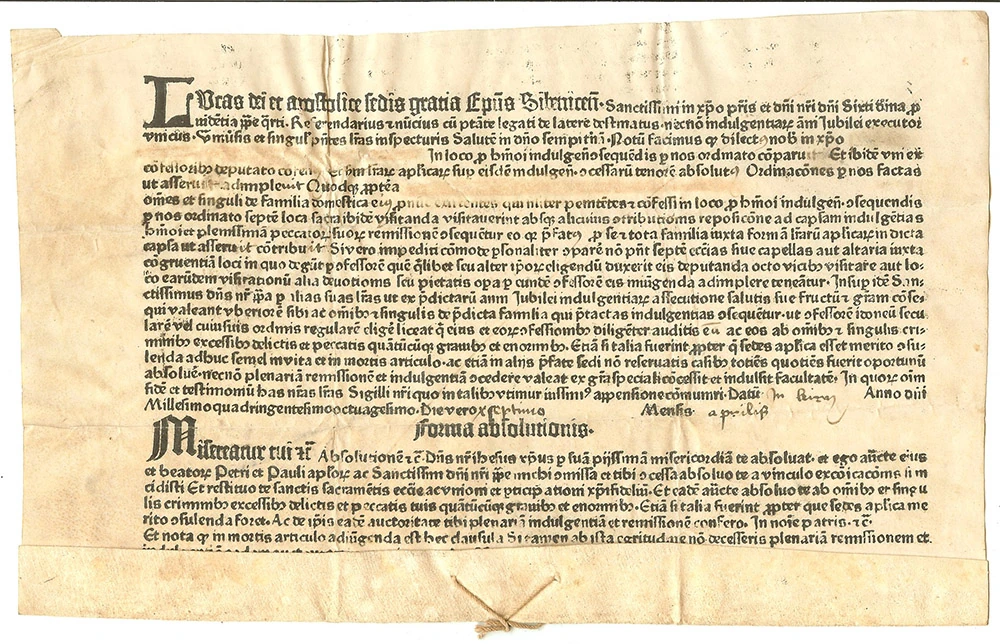 LVcas dei et apostolice sedis gratia Epūs Sibenicen̄. Sanctissimi in xp̄o p̄ris et dn̄i nr̄i dn̄i Sixti diuina ꝓ
uidētia ꝑpe q̄rti. Referendarius et nūcius cū ptāte legati de latere destinatus. necnō indulgentiaꝝ āni Iubilei executor
vnicus. Vniuersis et singulꝭ pn̄tes lr̄as inspecturis Salutē in dn̄o sempitnā. Notū facimus ꝙ dilectus nob in xp̄o
In loco ꝓ hmōi indulgen̄. ↄsequēdis ꝑ nos ordinato cōparuit Et ibidē vni ex
cōfessoribꝫ deputato
ut asseruit adimpleuit Quodqꝫ ꝓptēa
om̄es et singuli de familia domestica confessi in loco ꝓ hmōi indulgen̄. ↄsequendis
ꝑ nos ordinato septē loca sacra ibidē visitanda visitauerint absqꝫ alicuius ↄtributionis repositiōne ad capsam indulgētias
hmōi et plenissimā peccatoꝝ suoꝝ remissionē ↄsequētur eo ꝙ p̄fatꝰ, ꝓ se et tota familia iuxta formā lr̄aꝝ aplicaꝝ in dicta
capsa ut asseruit cōtribuit Si vero impediti cōmode ꝑsonaliter ↄparē nō pn̄t septē ecc̄ias siue capellas aut altaria iuxta
cōgruentiā loci in quo degūt ꝑ ↄfessorē quē qͥlibet seu alter ip̄oꝝ eligendū duxerit eis deputanda octo vicibꝫ visitare aut lo⸗
co earūdem visitationū alia deuotionis seu pietatis oꝑa ꝑ eundē ↄfessorē eis iniūgenda adimplere teneātur. Insuꝑ idē San⸗
ctissimus dn̄s nr̄ ꝑpa ꝑ alias suas lr̄as ut ex p̄dictarū anni Iubilei indulgentiaꝝ assecutione salutis sue fructū et gr̄am cōse⸗
qui valeant vberiorē sibi ac om̄ibꝫ et singulis de p̄dicta familia qui p̄tactas indulgentias ↄsequētur. ut ↄfessorē idoneū secu
larē vel cuiusuis ordinis regularē eligē liceat qͥ eius et eoꝝ ↄfessionibꝫ diligēter auditis eū ac eos ab om̄ibꝫ et singulis cri⸗
minibꝫ excessibꝫ delictis et peccatis quātūcūqꝫ grauibꝫ et enormibꝫ. Etiā si talia fuerint ꝓpter q̄ sedes aplica esset merito ↄsu⸗
lenda adhuc semel in vita et in mortis articulo. ac etiā in aliis p̄fate sedi nō reseruatis casibꝫ totiēs quotiēs fuerit oportunū
absoluē. necnō plenariam remissionē et indulgentiā ↄcedere valeat ex gr̄a speciali cōcessit et indulsit facultatē. In quoꝝ oīm
fidē et testimoniū has nr̄as lr̄as Sigilli nr̄i quo in talibꝫ vtimur iussimꝰ appensione cōmunri. Datū Anno dn̄i
Millesimoquadringentesimooctuagesimo. Die vero xseptimo Mensis aprilis
Forma absolutionis.
Misereatur tui ⁊c̄ Absolutionē ⁊c̄. Dn̄s nr̄ ihesus xp̄us ꝑ suā piissimā misericordiā te absoluat. et ego aūcte eius
et beatoꝝ Petri et Pauli aplorꝝ ac Sanctissimi dn̄i nr̄i ꝑpe michi ↄmissa et tibi ↄcessa absoluo te a vinculo excōicacōnis si in
cidisti Et restituo te sanctis sacramētis ecc̄ie ac vnioni et pticipationi xp̄i fideliū. Et eadē aūcte absoluo te ab om̄ibꝫ et singu
lis criminibꝫ excessibꝫ delictis et peccatis tuis quātūcūqꝫ grauibꝫ et enormibꝫ. Etiā si talia fuerint ꝓpter que sedes aplica me
rito ↄsulenda foret. Ac de ip̄is eadē auctoritate tibi plenariā indulgentiā et remissionē confero. In nōie patris. ⁊c̄.
Et nota ꝙ in mortis articulo adiūgenda est hec clausula Si tamen ab ista egritudine nō decesseris plenariā remissionem et